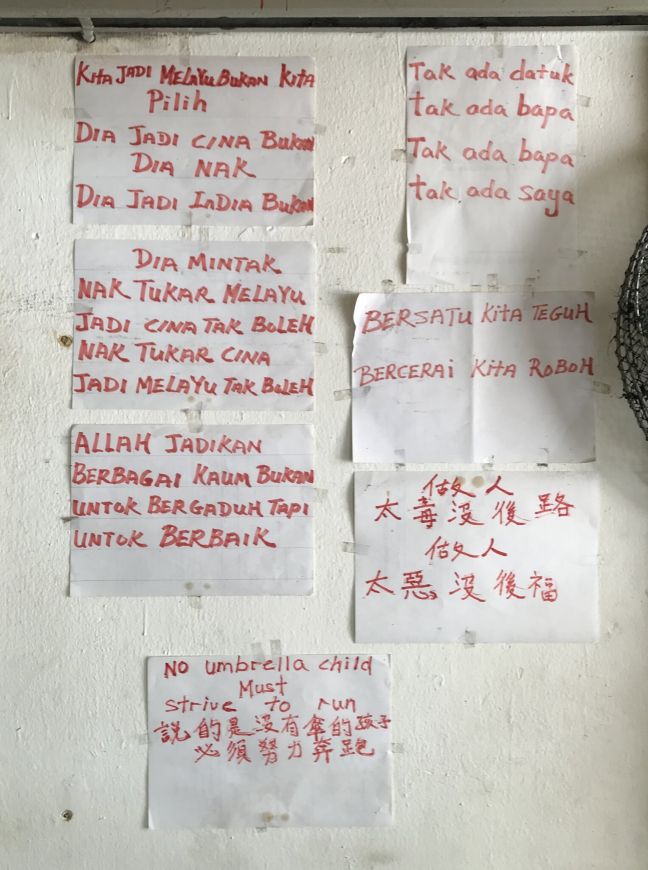 KITA JADI MELAYU BUKAN KITA
PiLiH
DIA JADI CINA BUKAN
DIA NAK
DIA JADI INDIA BUKAN
DIA MINTAK
NAK TUKAR MELAYU
JADI CINA TAK BOLEH
NAK TUKAR CINA
JADI MELAYU TAK BOLEH
ALLAH JADIKAN
BERBAGAI KAUM BUKAN
UNTOK BERGADUH TAPI
UNTOK BERBAIK
Tak ada datuk
tak ada bapa
Tak ada bapa
tak ada saya
BERSATU KITA TEGUH
BERCERAI KITA ROBOH
做人
太毒沒後路
做人
太惡沒後福
NO umbrella child
Must
strive to run
說的是没有傘的孩子
必須努力奔跑